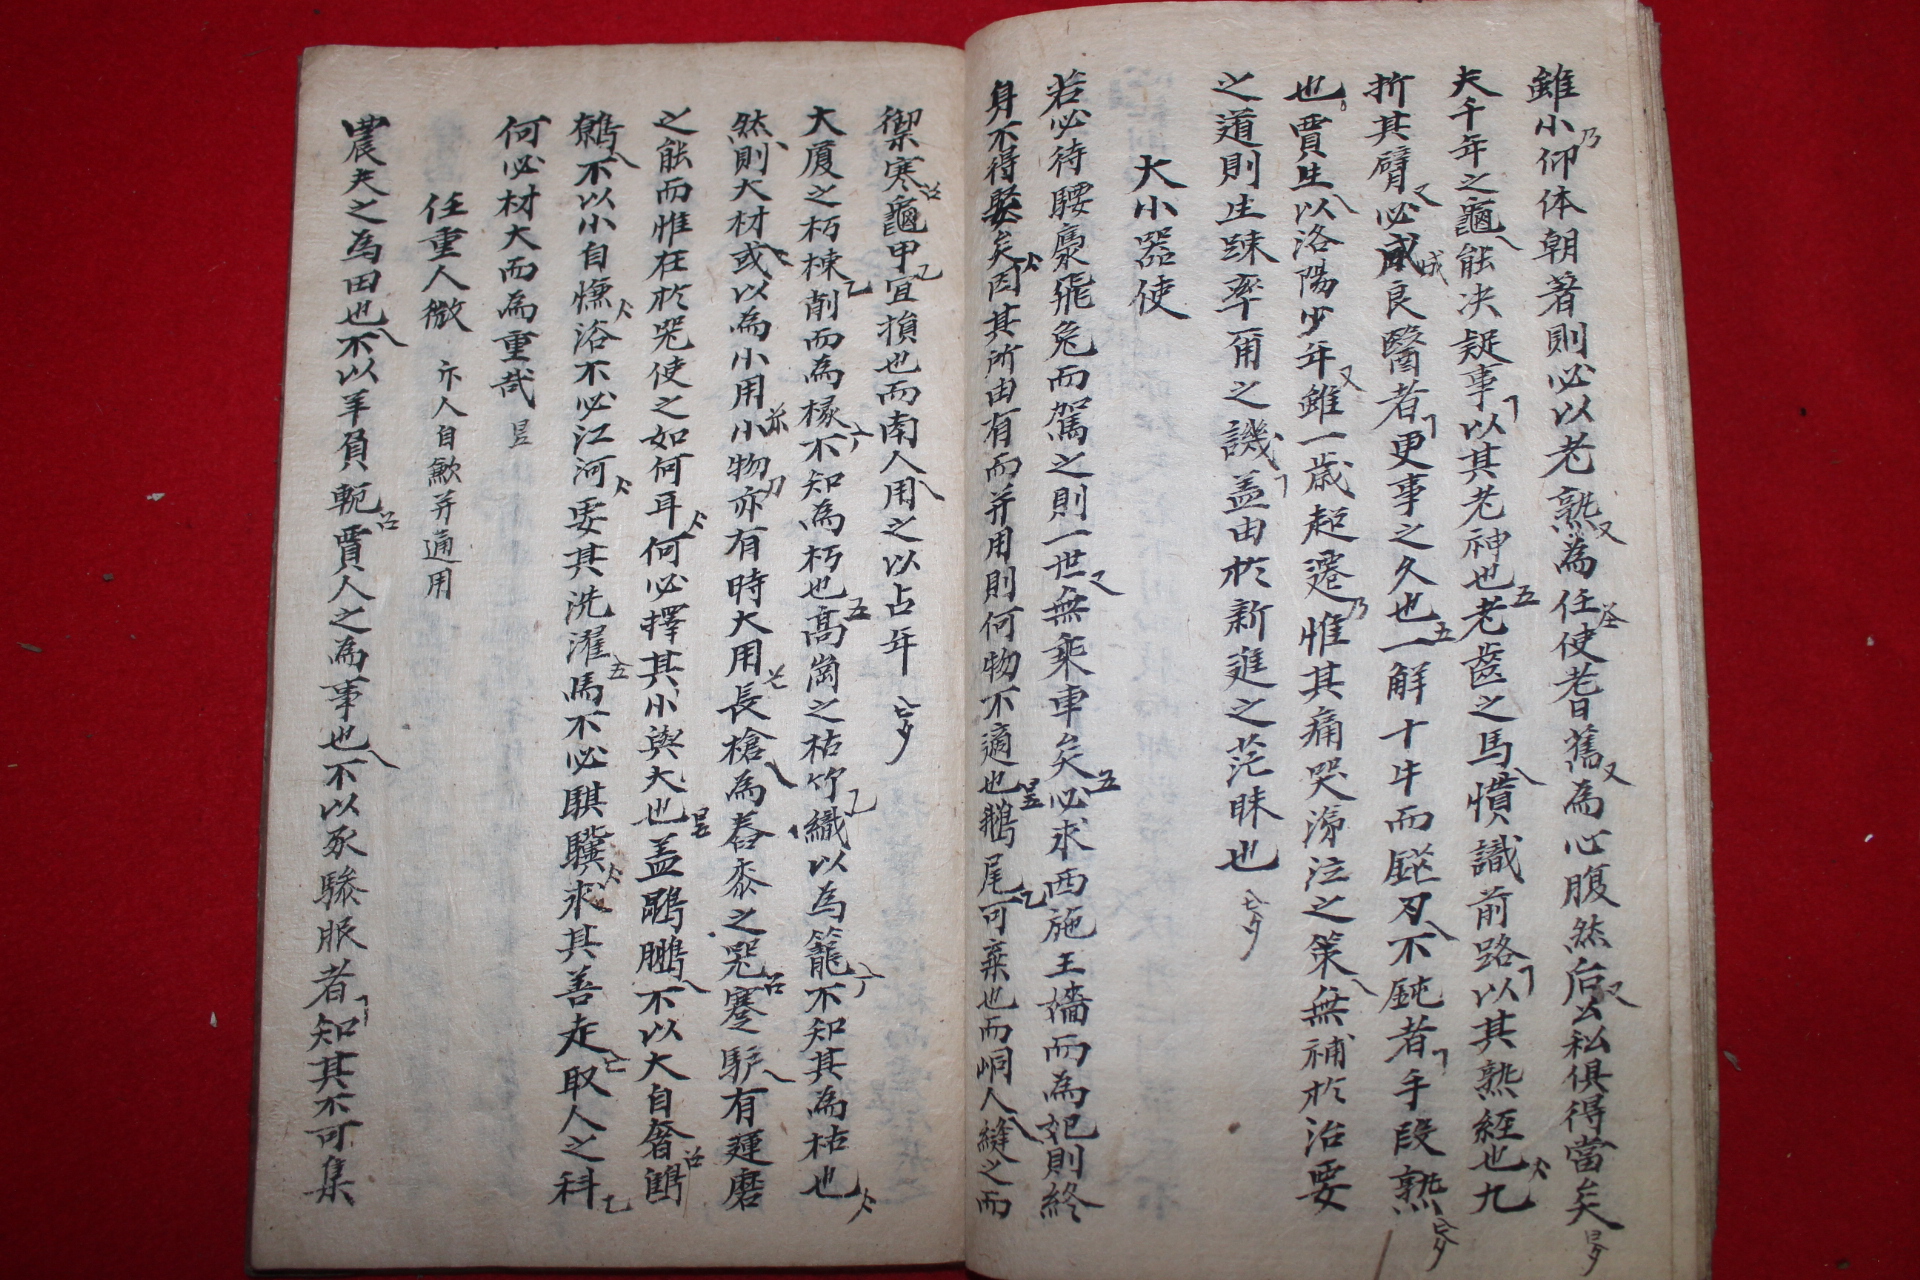 雖小仰体朝著則必以老熟為任使耆舊為心腹然后公私俱得當矣
夫千年之龜能决疑事以其老神也老齒之馬慣識前路以其熟經也九
折其臂必成良醫者更事之久也一解十牛而鋩刃不鈍者手段熟
也賈生以洛陽少年雖一歲超遷惟其痛哭涕注之策無補於治要
之道則生踈率爾之譏盖由於新進之茫昧也
大小器使
若必待騕褭飛兔而駕之則一世無乘車矣必求西施王嬙而為妃則終
身不得娶矣因其所由有而并用則何物不適也鵝尾可棄也而峒人縫之而
禦寒龜甲宜損也而南人用之以占年
大厦之朽棟削而為椽不知為朽也高崗之枯竹織以為籠不知其為枯也
然則大材或以為小用小物亦有時大用長槍為舂黍之器蹇馿有運磨
之能而惟在於器使之如何耳何必擇其小與大也盖鵾鵬不以大自奢鷦
鷯不以小自憮浴不必江河要其洗濯馬不必騏驥求其善走取人之科
何必材大而為重哉
任重人微 卞人自歉并通用
農夫之為田也不以羊負軛賈人之為事也不以豕驂服者知其不可集